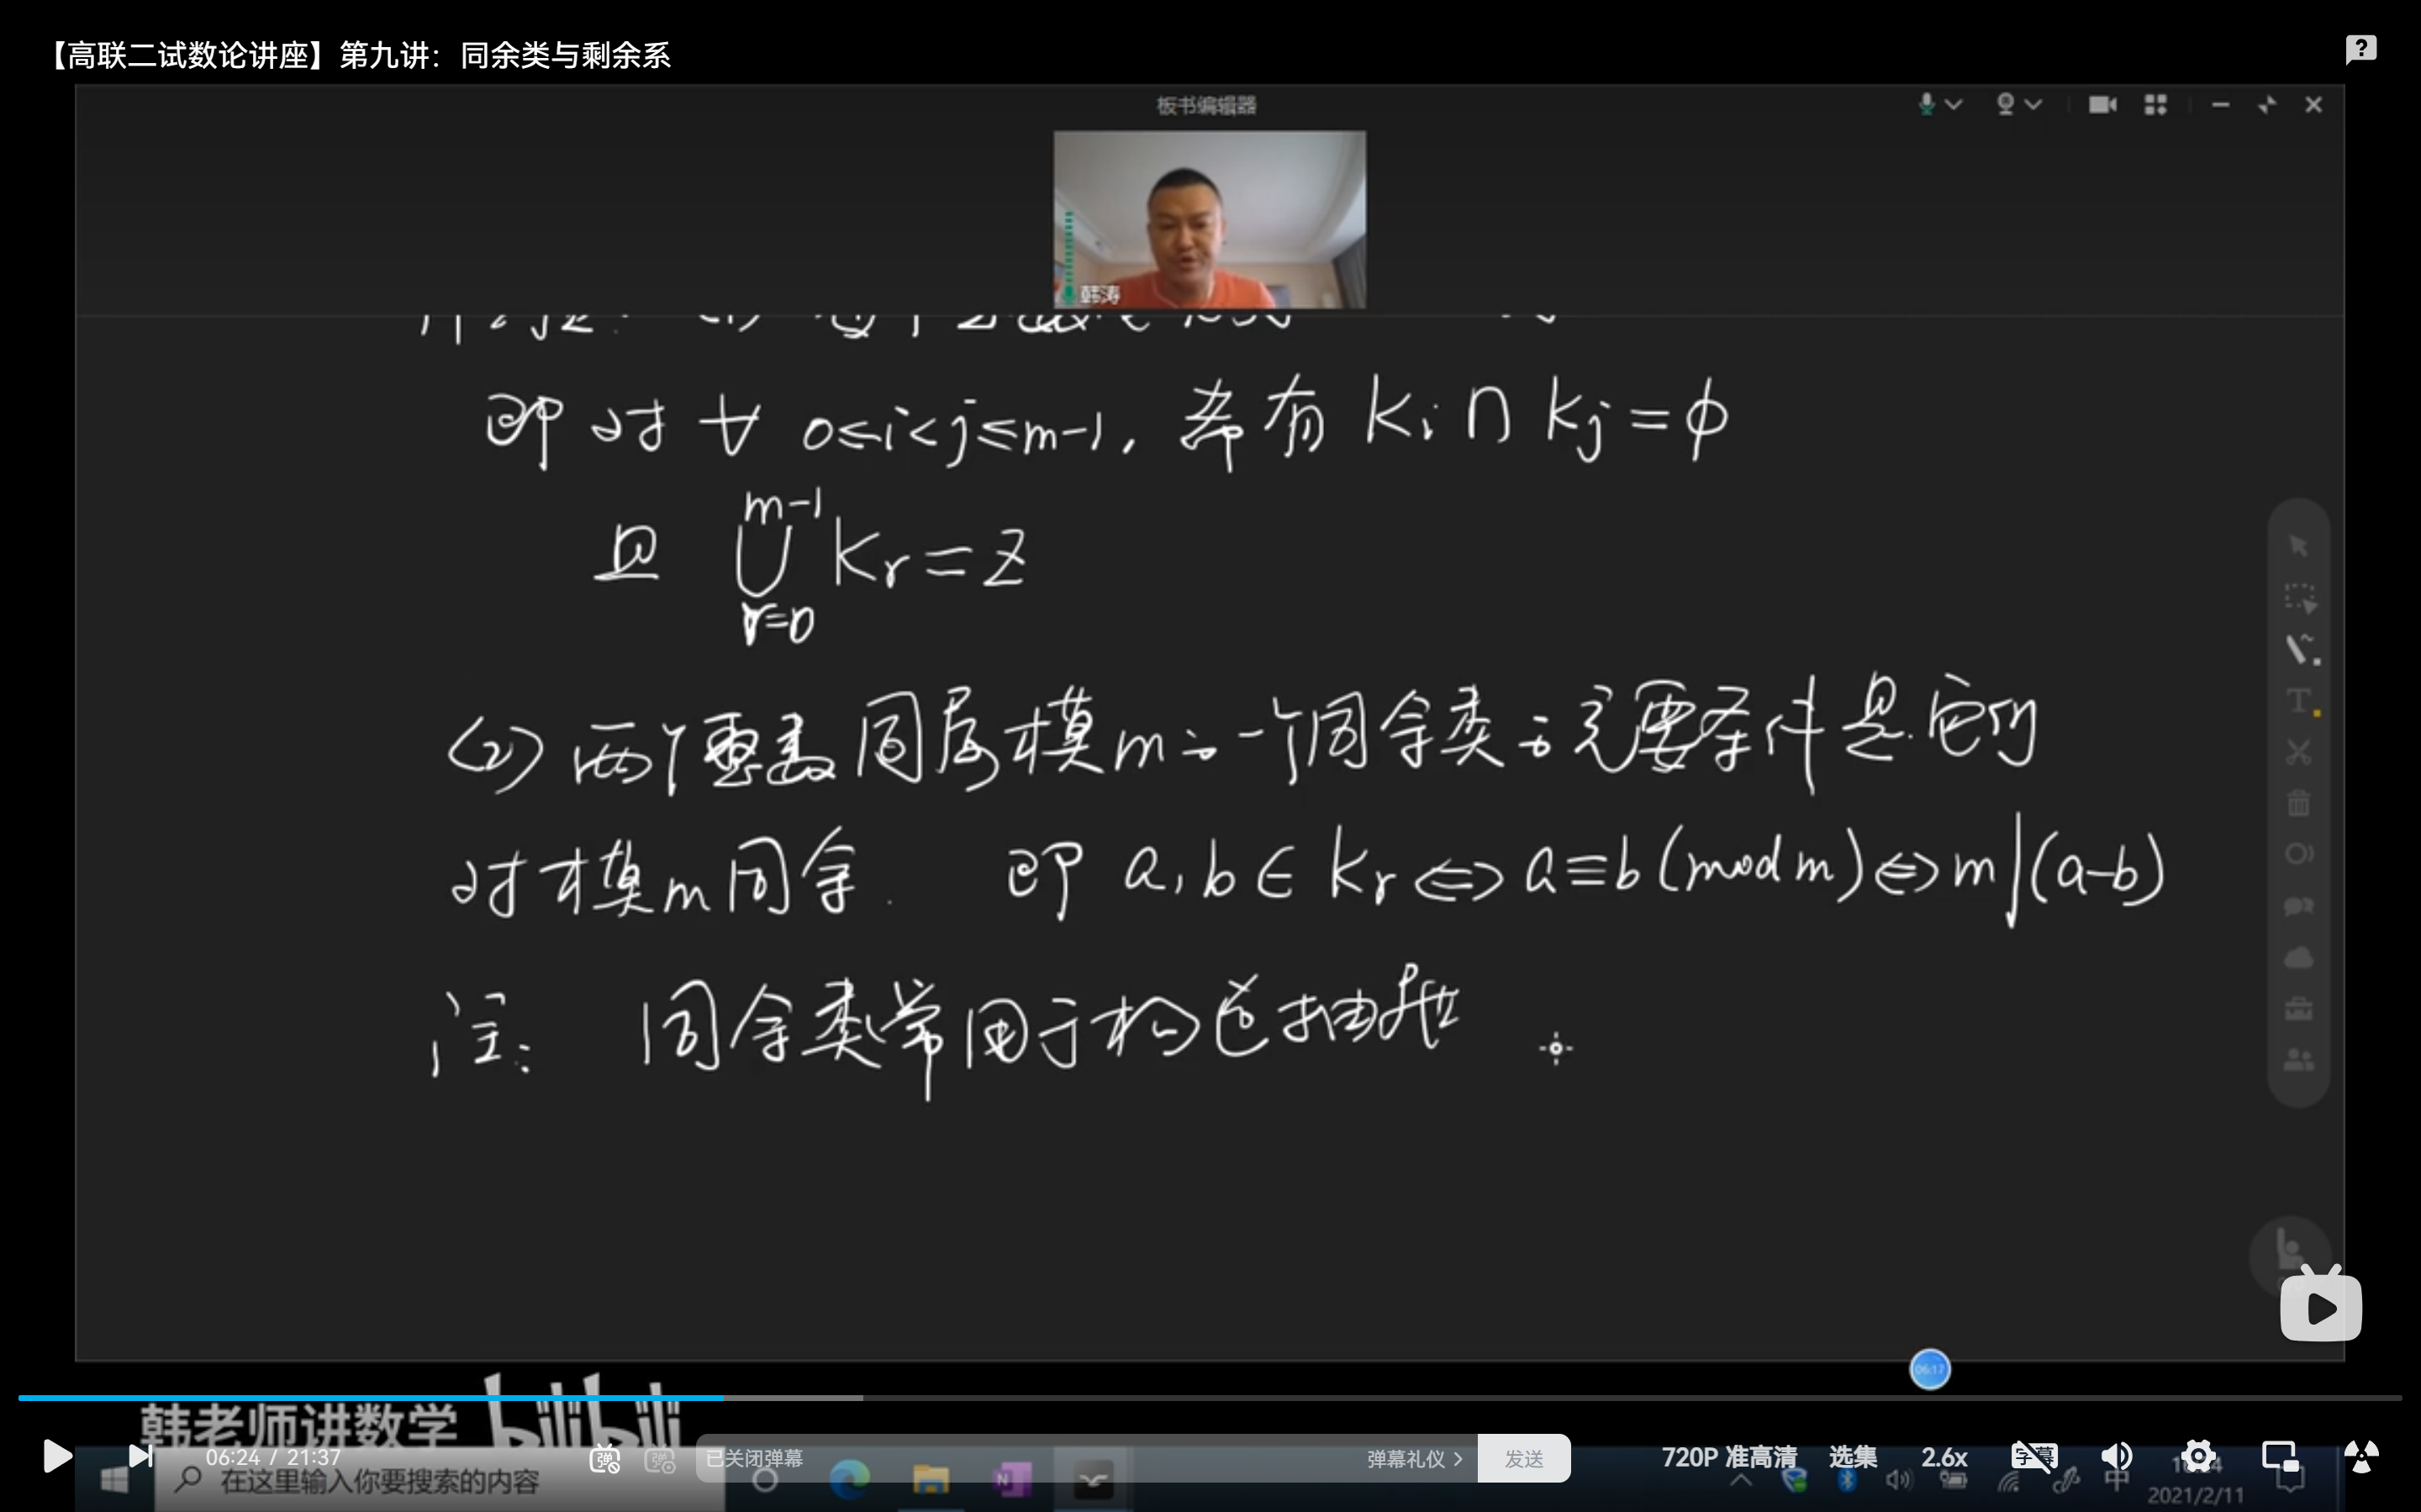 【高联二试数论讲座】第九讲：同余类与剩余系
板书编辑器
韩涛
即对 ∀ 0≤i<j≤m-1, 都有 Ki ∩ Kj = ϕ
且 ⋃_{r=0}^{m-1} Kr = Z
(2) 两个整数同属模m的一个同余类的充要条件是它们
对模m同余. 即 a, b ∈ Kr ⇔ a ≡ b (mod m) ⇔ m | (a-b)
注: 同余类常用于构造抽屉
06:17
韩老师讲数学 bilibili
06:24 / 21:37 已关闭弹幕 弹幕礼仪 > 发送 720P 准高清 选集 2.6x 字幕
在这里输入你要搜索的内容
中
2021/2/11